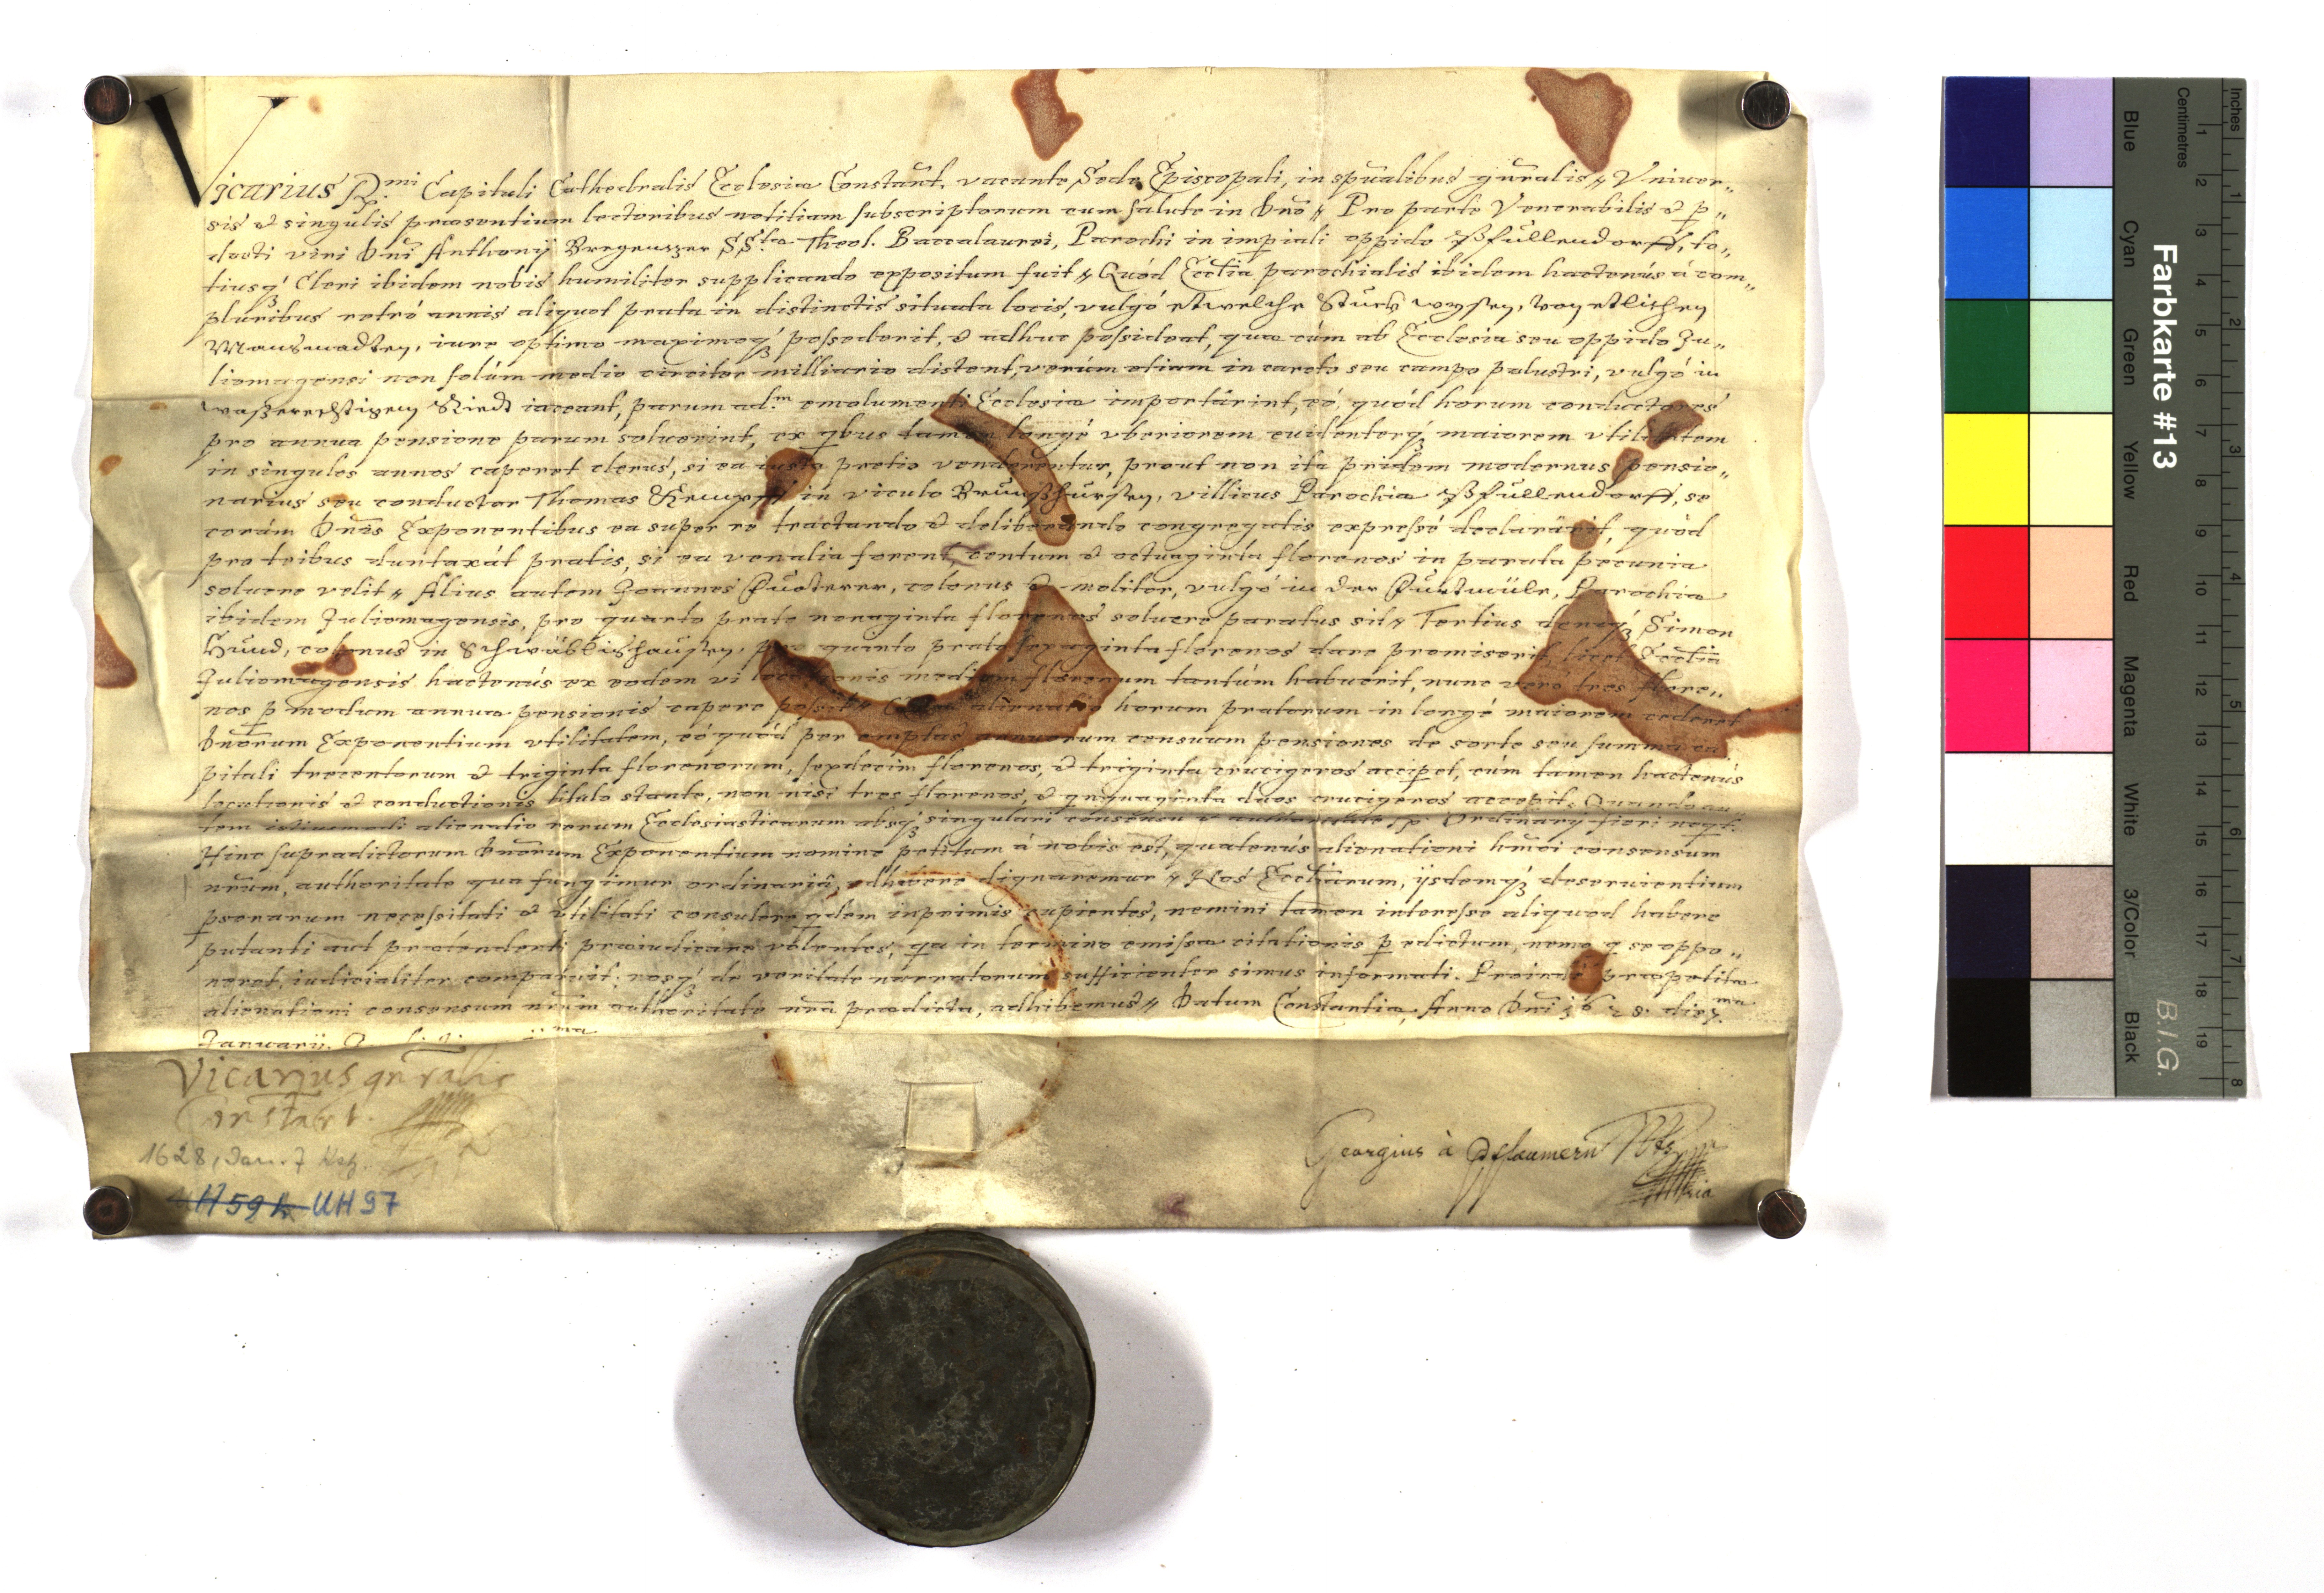 Vicarius R.mi Capituli Cathedralis Ecclesiæ Constant̄. vacante Sede Episcopali, in spūalibus gn̄ralis // Vniuer„
sis & singulis præsentium lectoribus notitiam subscriptorum cum salute in Dn̄o // Pro parte Venerabilis & p„
docti viri Dn̄i Anthonij Bregenzer SS.tæ Theol. Baccalaurei, Parochi in imp̄iali oppido Pfullendorff, to„
tiusq́ Cleri ibidem nobis humiliter supplicando expositum fuit // Quód Ecctia parochialis ibidem hactenús á com„
pluribus retró annis aliquot prata in distinctis situata locis, vulgó etwelche Stuckh wysen, von etlichen
Mansmadten, iure optimo maximoq́ȝ possederit, & adhuc possideat, quæ cúm ab Ecclesia seu oppido Ju„
liomagensi non solúm medio circiter milliario distent, verúm etiam in carecto seu campo palustri, vulgó in
waßerechtigem Riedt iaceant, parum ad.m emolumenti Ecclesiæ importârint, eó, quód horum conductores
pro annua pensione parum soluerint, ex qbus tamen longé vberiorem euidenterq́ȝ maiorem vtilitatem
in singulos annos caperet clerus, si ea iusto pretio venderentur, prout non ita pridem modernus pensio„
narius seu conductor Thomas in viculo villicus Parochiæ Pfullendorff, se
corám Dn̄is Exponentibus ea super re tractando & deliberando congregatis expressé declarârit, quòd
pro tribus duntaxát pratis, si ea venalia forent, centum & octuaginta florenos in parata pecunia
soluere velit // Alius autem Joannes colonus & molitor, vulgó in der Parochiæ
ibidem Juliomagensis, pro quarto prato nonaginta florenos soluere paratus sit // Tertius deniq́ȝ Simon
colonus in Schwäblishausen, pro quinto prato sexaginta florenos dare promiserit, licet Ecctia
Juliomagensis hactenús ex eodem vi locationis medium florenum tantúm habuerit, nunc veró tres flore„
nos p modum annuæ pensionis capere possit // alienatio horum pratorum in longé maiorem cederet
Dn̄orum Exponentium vtilitatem, eó quód per emptas annuorum censuum pensiones de sorte seu summa ca
pitali trecentorum & triginta florenorum, sexdecim florenos, & triginta crucigeros accip̄et, cúm tamen hactenús
locationis & conductionis titulo stante, non nisi tres florenos, & qnquaginta duos crucigeros accepit. Quando au
tem istiusmodi alienatio rerum Ecclesiasticarum absq́ȝ singulari consensu & authoritate Ordinarij fieri neqt:
Hinc supradictorum Dn̄orum Exponentium nomine petitum á nobis est, quatenús alienationi hm̄oi consensum
nr̄um, authoritate qua fungimur ordinariâ, adhibere dignaremur // Nos Ecctiarum, ijsdemq́ȝ deseruientium
psonarum necessitati & vtilitati consulere qdem inprimis cupientes, nemini tamen interesse aliquod habere
putanti aut prætendenti præiudicare volentes, qa in termino emissæ citationis p edictum, nemo q se oppo„
neret, iudicialiter comparuit; nosq́ȝ de veritate narratorum sufficienter simus informati. Proindè præpetitæ
alienationi consensum nr̄um authoritate nr̄a prædicta, adhibemus // Datum Constantiæ, Anno Dn̄i 1628. die 7.ma
Januarij.
Vicarius gn̄ralis
Constant.
1628, Jan. 7
H 59 UH 97
Georgius à Pflaumern
Farbkarte #13
B.I.G.
Inches
Centimetres
1 2 3 4 5 6 7 8 9 10 11 12 13 14 15 16 17 18 19
1 2 3 4 5 6 7 8
Blue Cyan Green Yellow Red Magenta White 3/Color Black